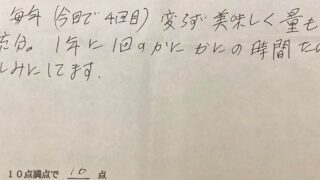 毎年 (今回で4回目) 変らず美味しく量も
充分。1年に1回のかにかにの時間たの
しみにしてます.
10点満点で 10 点